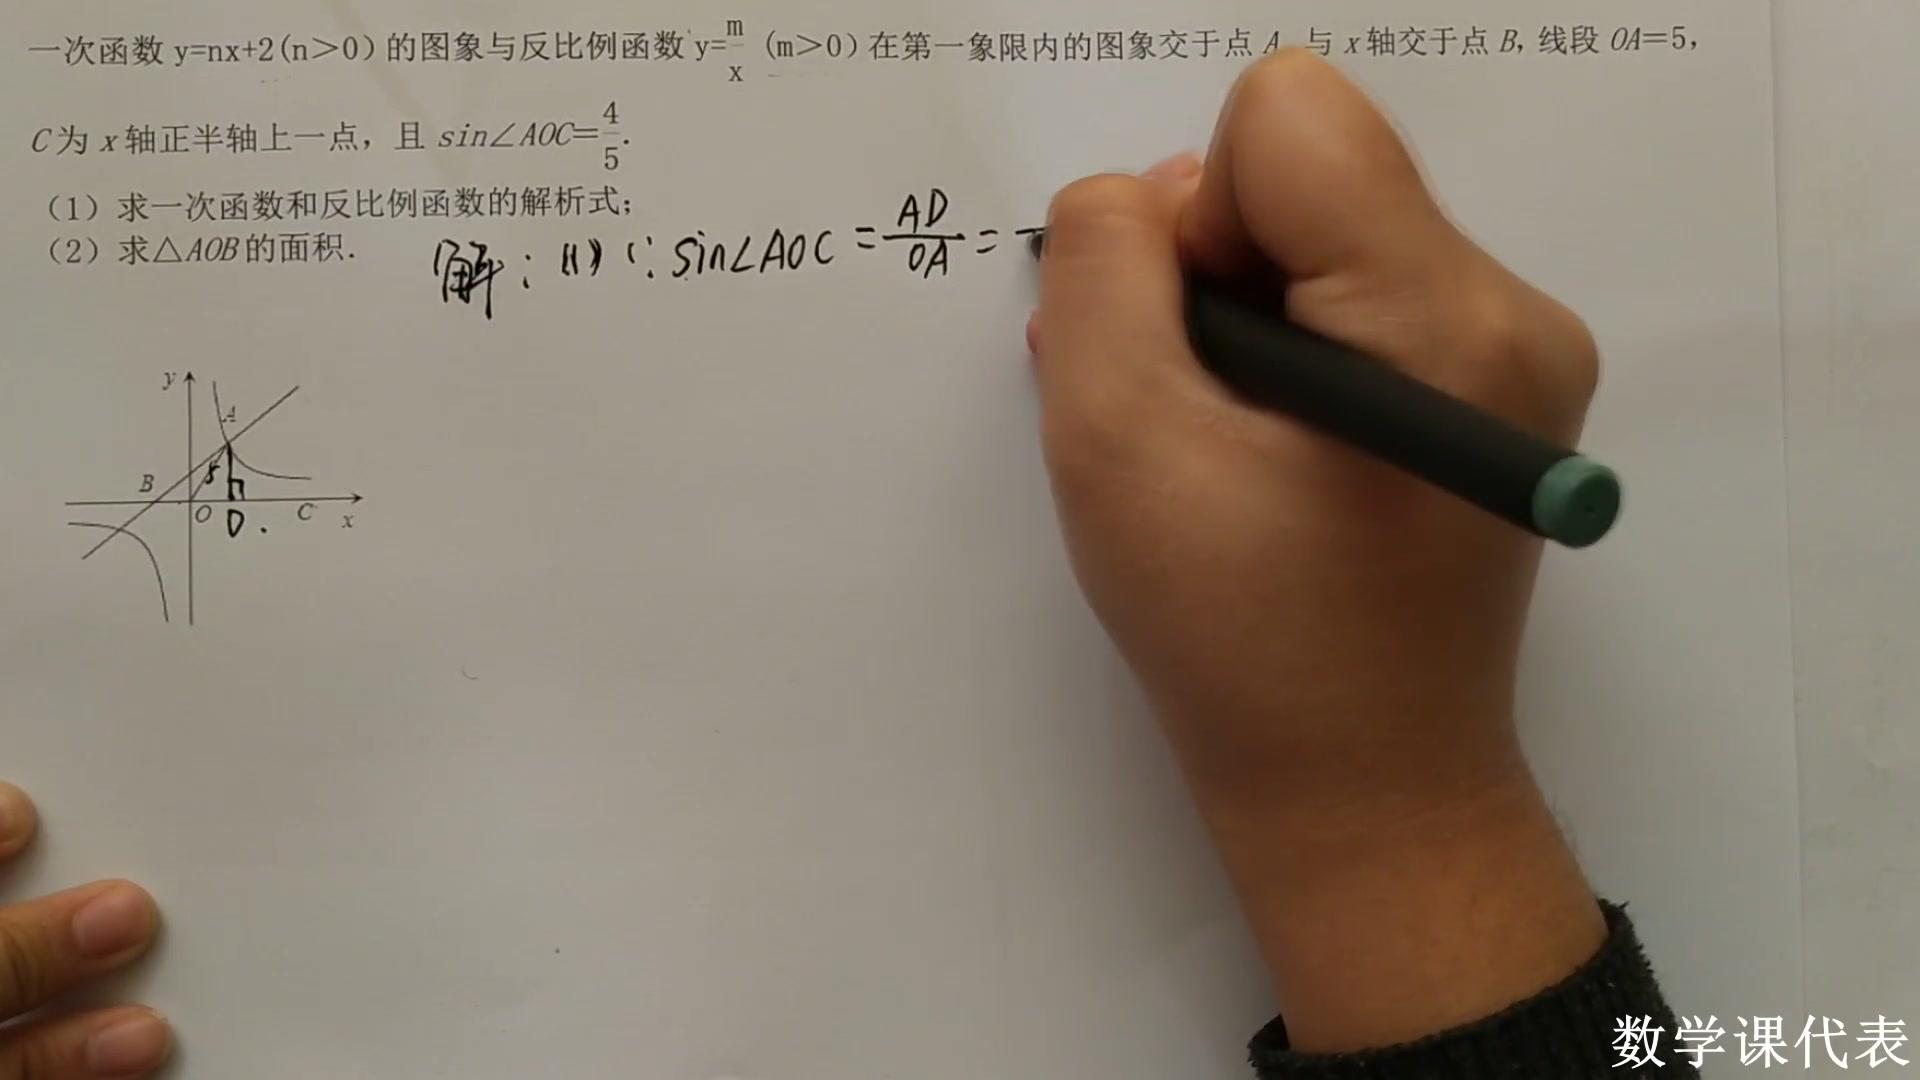 一次函数 y=nx+2(n＞0)的图象与反比例函数 y=m/x (m＞0)在第一象限内的图象交于点 A 与 x 轴交于点 B, 线段 OA=5,
C 为 x 轴正半轴上一点，且 sin∠AOC=4/5.
（1）求一次函数和反比例函数的解析式；
（2）求△AOB 的面积.
解：(1) ∵ sin∠AOC = AD/OA =
y
A
5
B
O
D.
C
x
数学课代表